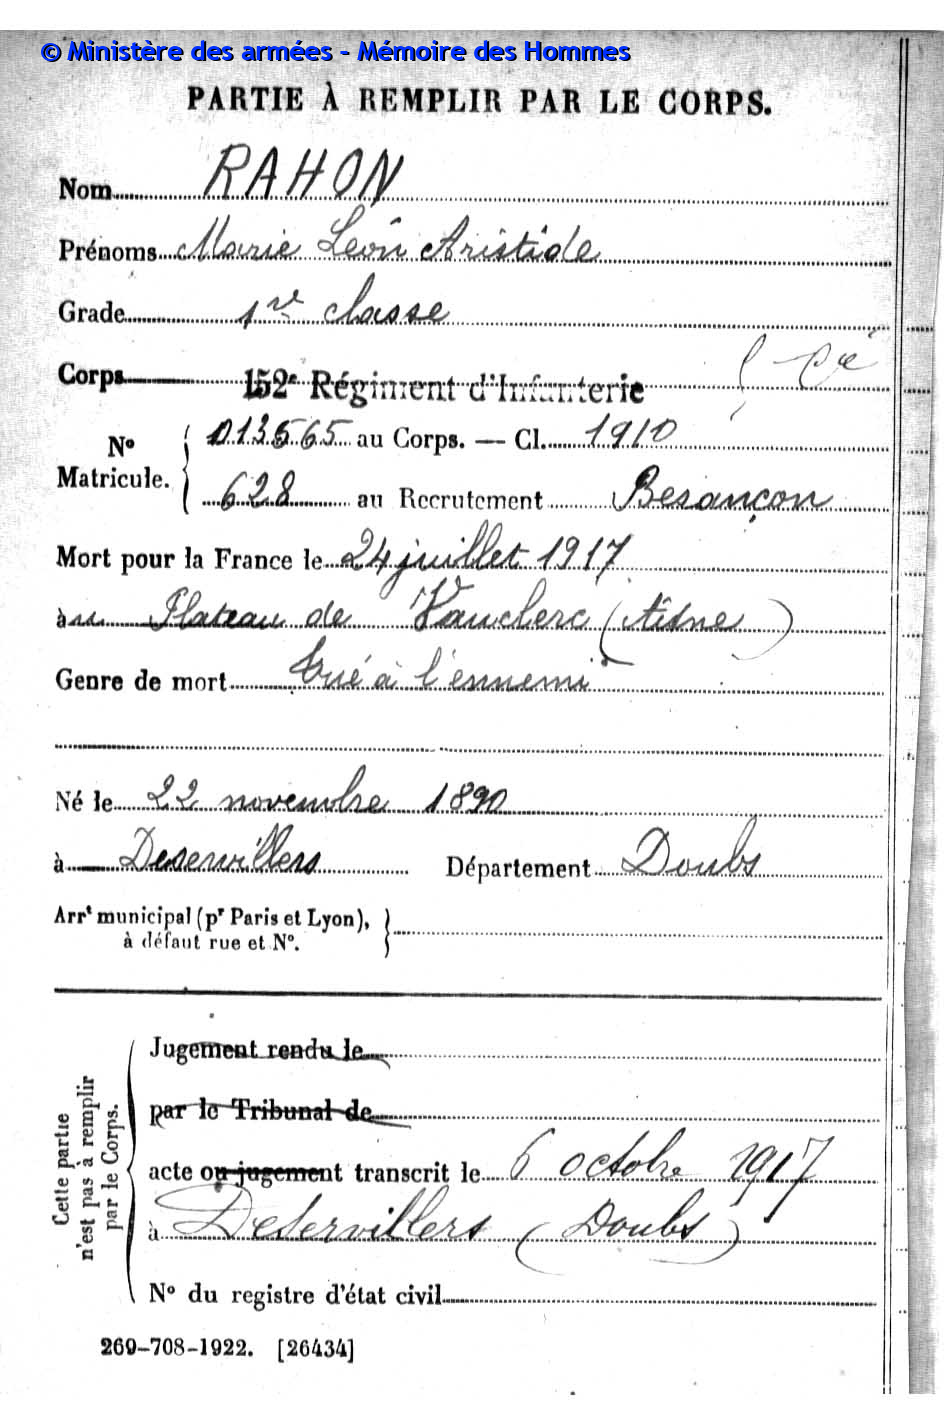 © Ministère des armées - Mémoire des Hommes
PARTIE À REMPLIR PAR LE CORPS.
Nom RAHON
Prénoms Marie Léon Aristide
Grade 1re classe
Corps 152e Régiment d'Infanterie
N° Matricule. { 013565 au Corps. — Cl. 1910
628 au Recrutement Besançon
Mort pour la France le 24 juillet 1917
au Plateau de Vauclerc (Aisne)
Genre de mort tué à l'ennemi
Né le 22 novembre 1890
à Deservillers Département Doubs
Arrt municipal (pr Paris et Lyon), }
à défaut rue et N°.
Cette partie n'est pas à remplir par le Corps.
Jugement rendu le
par le Tribunal de
acte ou jugement transcrit le 6 octobre 1917
à Deservillers (Doubs)
N° du registre d'état civil
269-708-1922. [26434]